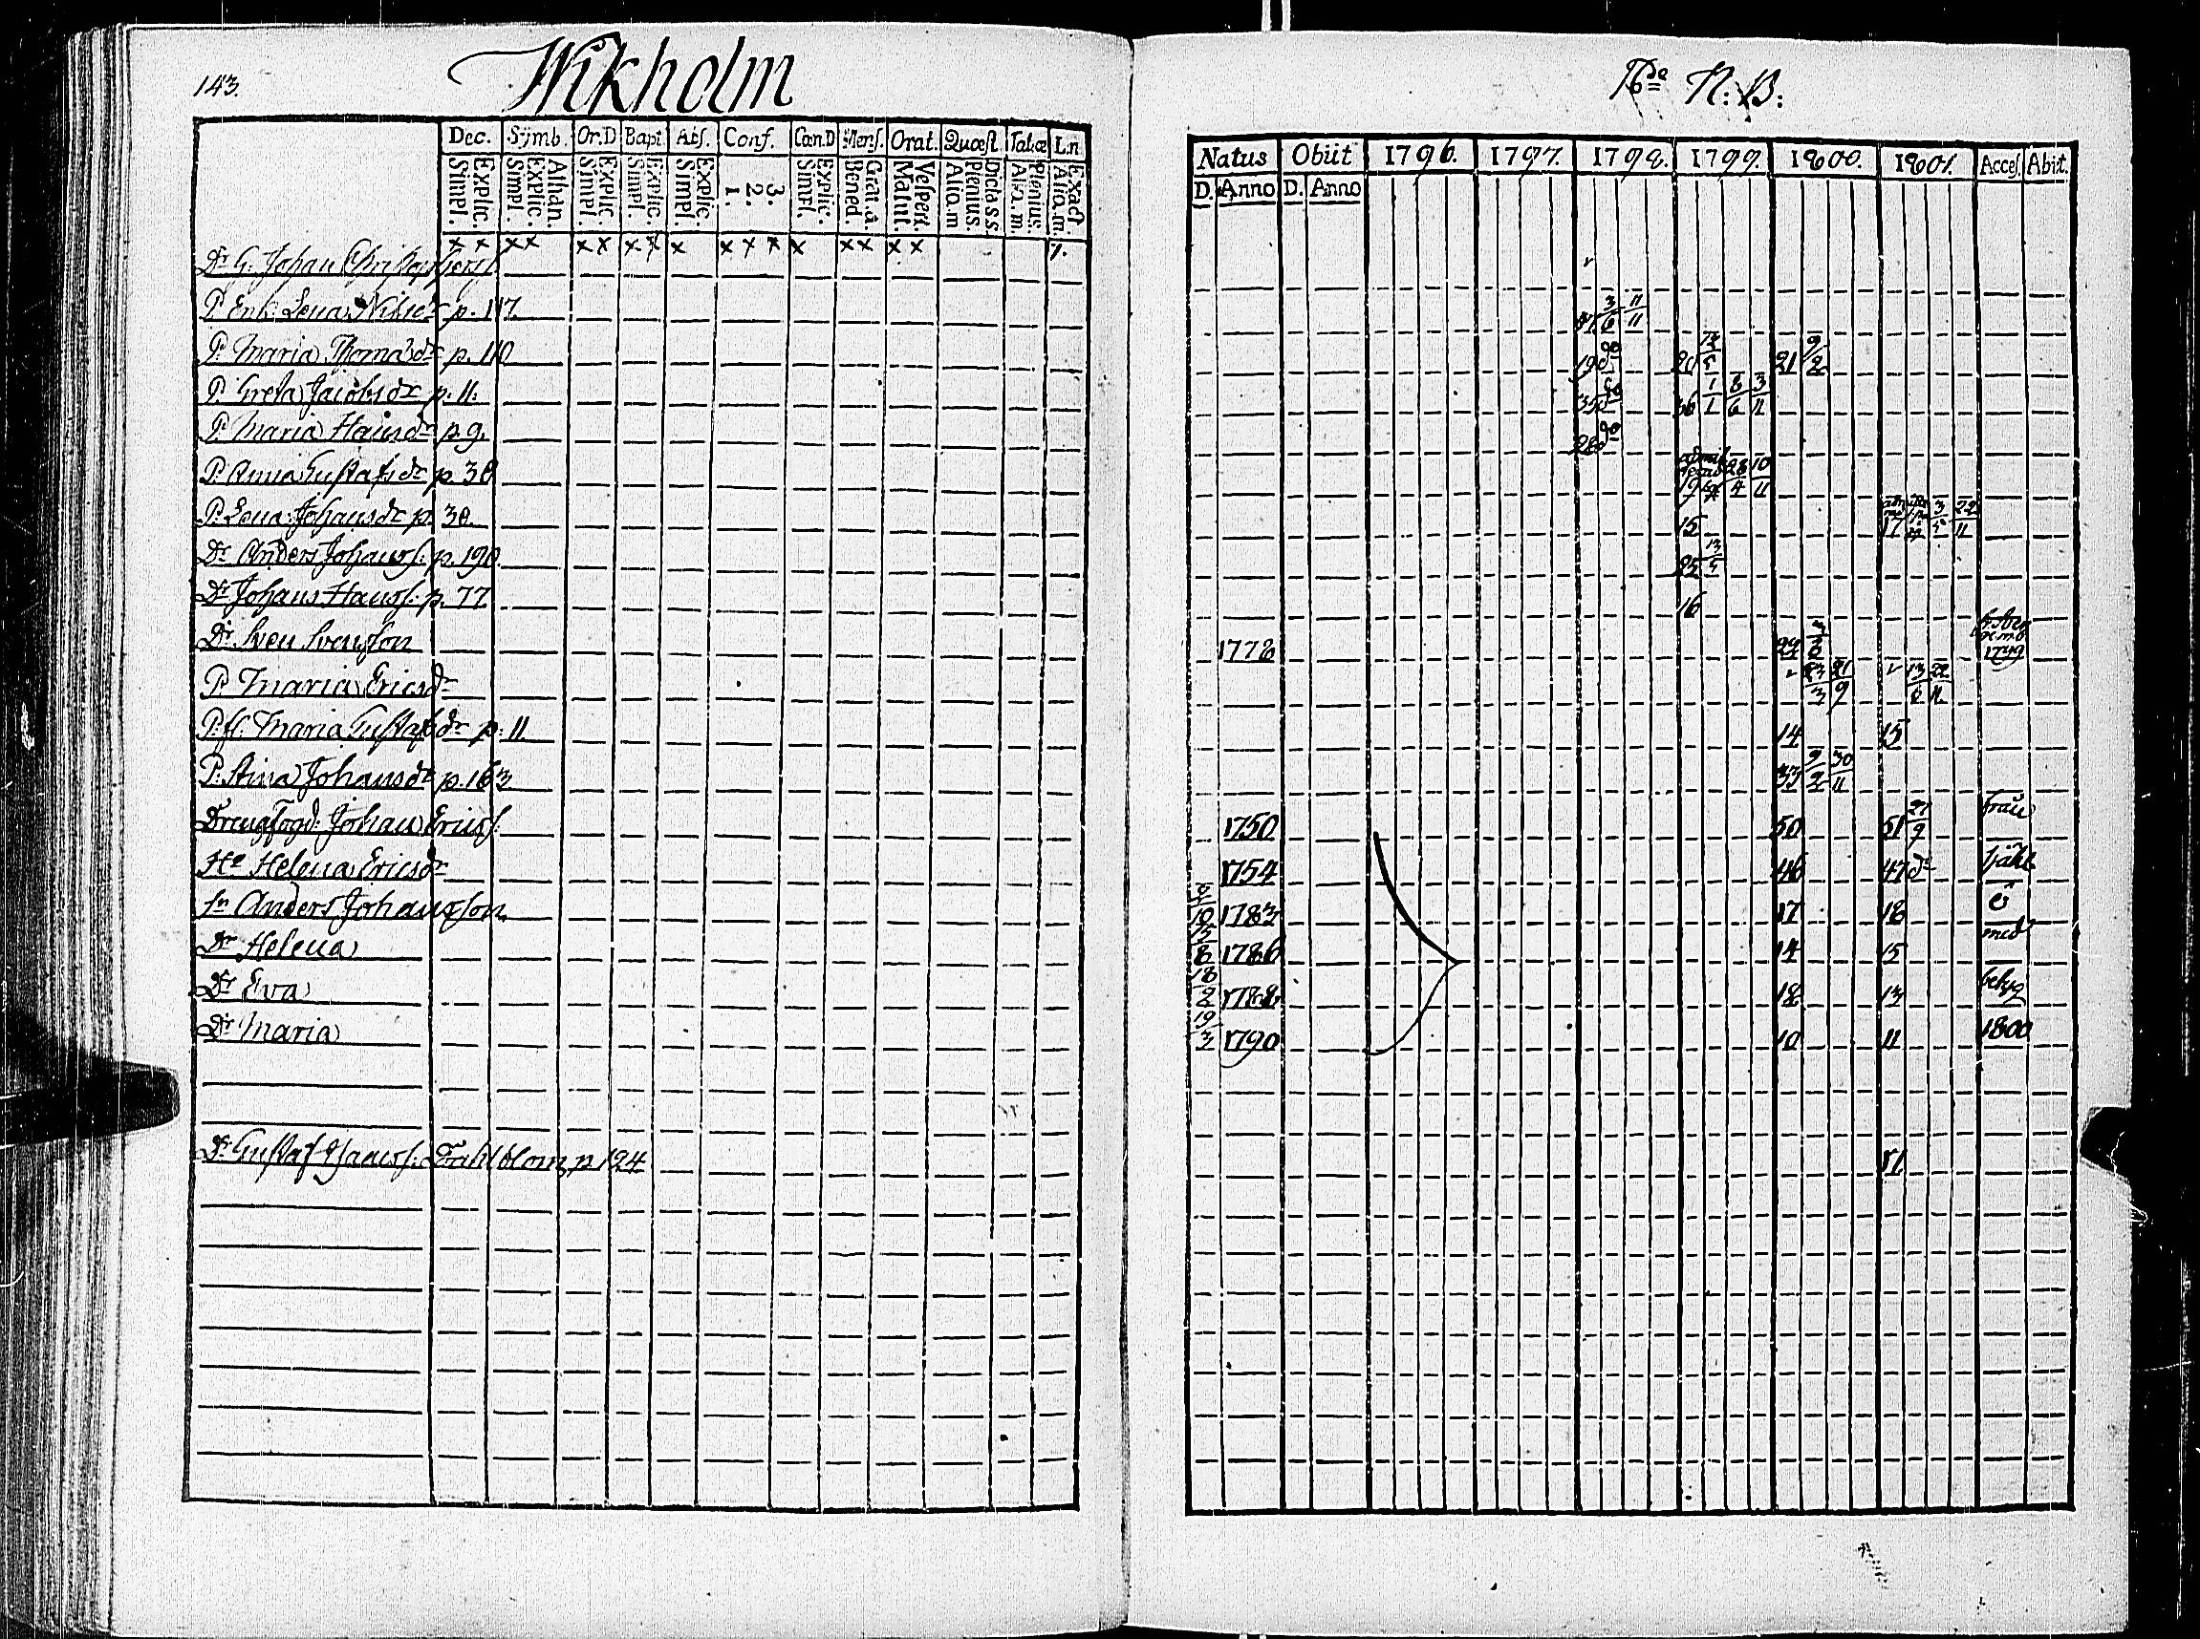 143.
Wikholm
Dec. Symb. Or.D Bapt. Abs. Conf. Cœn.D Mens. Orat. Quæst. Tabæ Ln
Simpl. Explic. Simpl. Explic. Athan. Simpl. Explic. Simpl. Explic. Simpl. Explic. 1. 2. 3. Simpl. Explic. Bened. Grat.a. Matut. Vespert. Aliq.m Plenius. Dict.a s.s. Aliq.m. Plenius. Aliq.m. Exact
x x x x x x x x x x x x x x x x x
Dr. G. Johan Christophers
P. Enk. Lena Nilsdr p. 117.
P. Maria Thomasdr p. 110
P. Greta Jacobsdr p. 11.
P. Maria Hansdr p. 9.
P. Anna Gustafsdr p. 38
P. Lena Johansdr p. 38.
Dr. Anders Johanss. p. 190.
Dr. Johans Hanss. p. 77
Dr. Sven Svensson
P. Maria Ericsdr
P. fl. Maria Gustafsdr p. 11.
P. Stina Johansdr p. 163.
Drengfogd. Johan Ericss.
Hu Helena Ericsdr
Sn Anders Johansson
Dr Helena
Dr Eva
Dr Maria
Dr. Gustaf Isaacss. Dahlblom p 124
16de N: B:
Natus Obiit 1796. 1797. 1798. 1799. 1800. 1801. Acces. Abit.
D. Anno D. Anno
3/6 11/11
19 do 20 13/5 21 9/2
35 do 36 1/1 6/6 3/11
28 do
19 28/4 10/11
15 17 3/5 22/11
25 13/5
16
1778 1799
23/3 21/9 13/6 22/11
14 15
33 9/2 30/11
1750 50 51 21/9 från
1754 46 47 do
2/10 1783 17 18
15/8 1786 14 15 med
18/2 1788 12 13 betyg
19/3 1790 10 11 1800
51